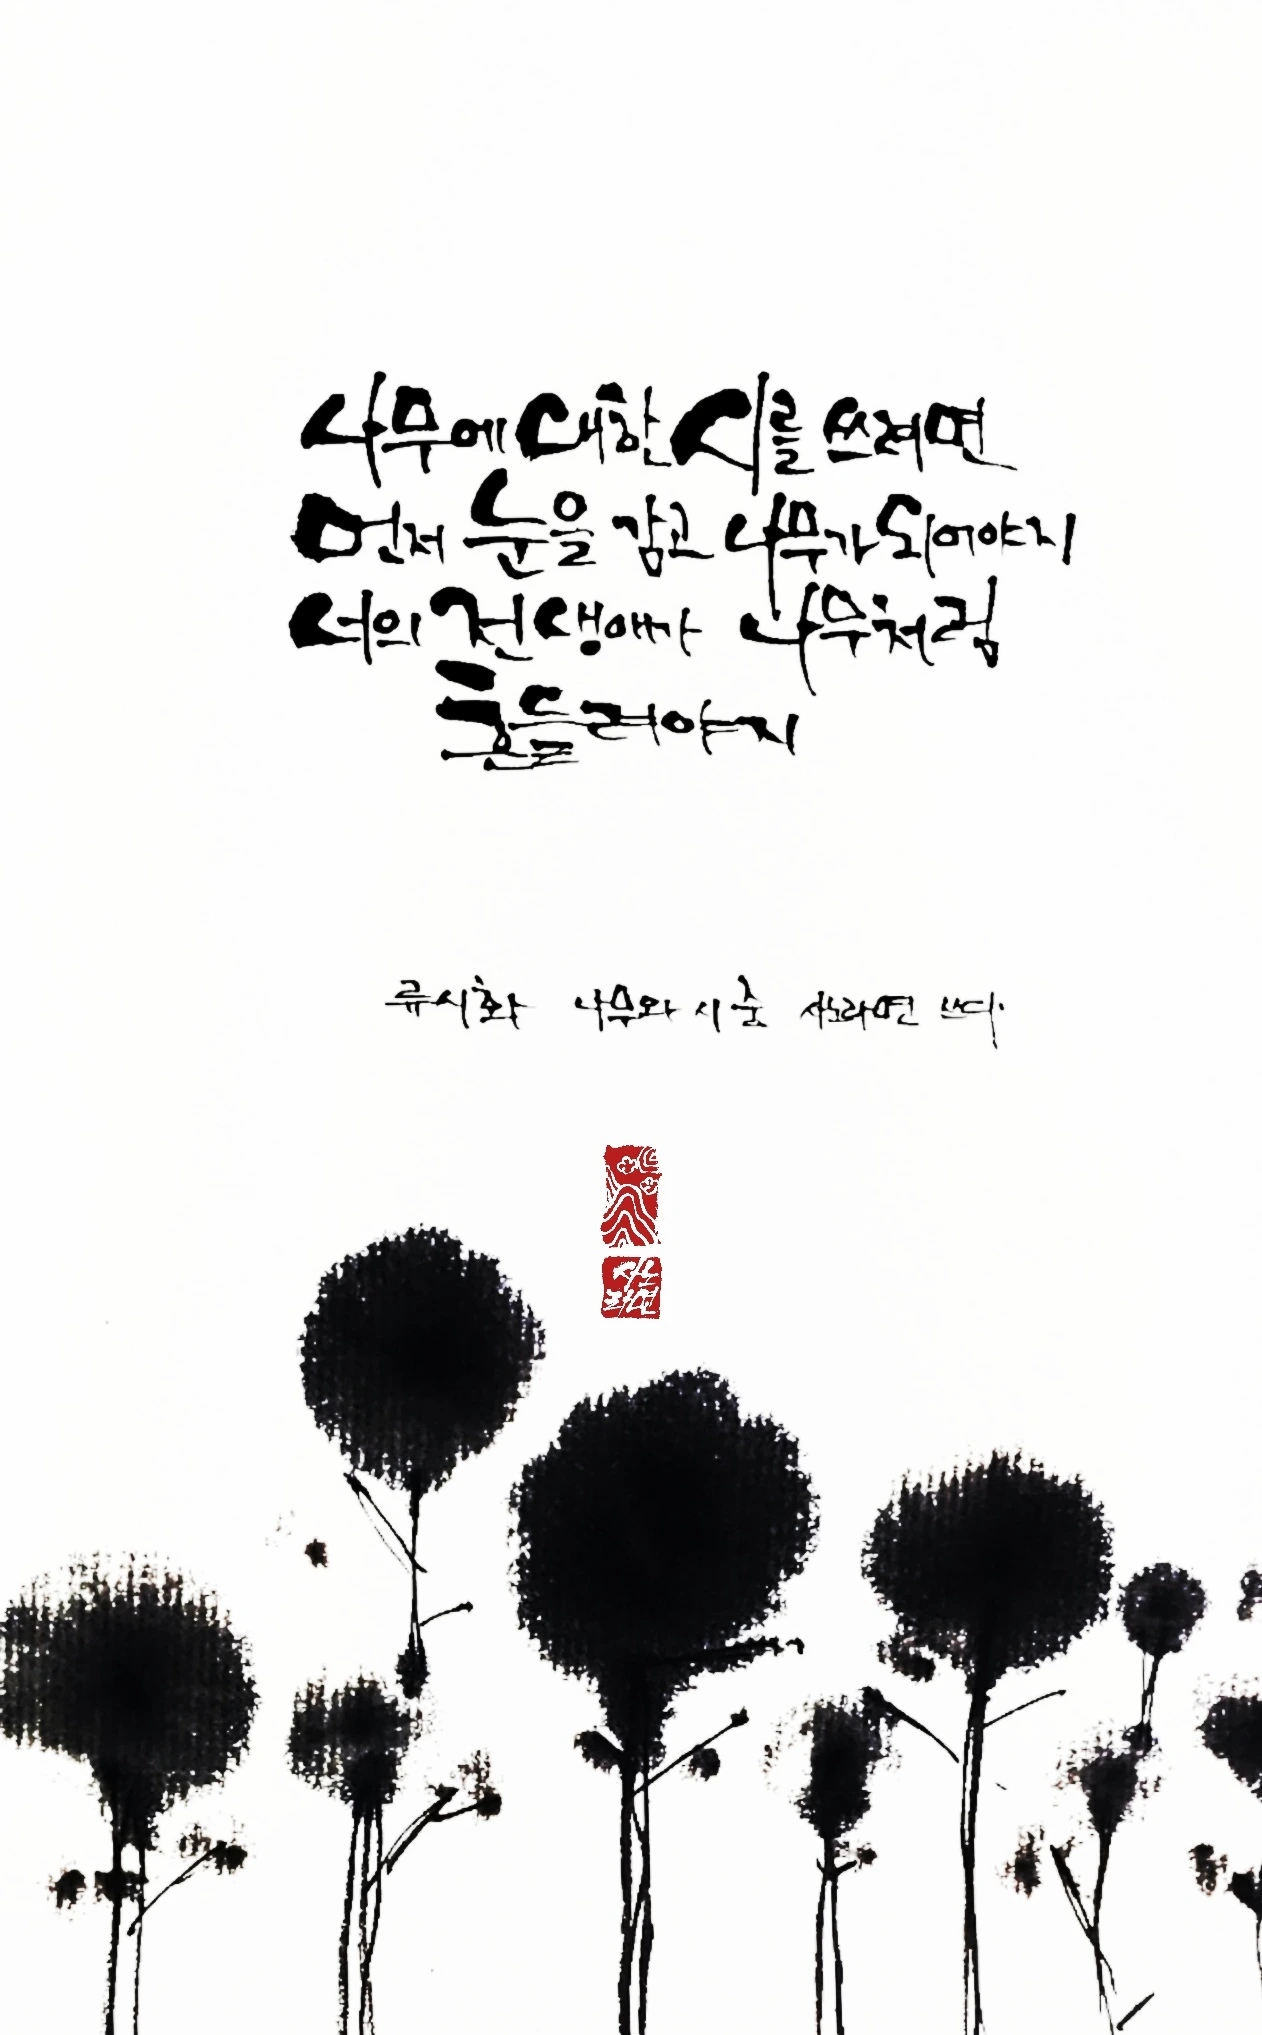 나무에 대한 시를 쓰려면
먼저 눈을 감고 나무가 되어야지
너의 전 생애가 나무처럼
흔들려야지
류시화 나무와 시 중 산노라면 쓰다.